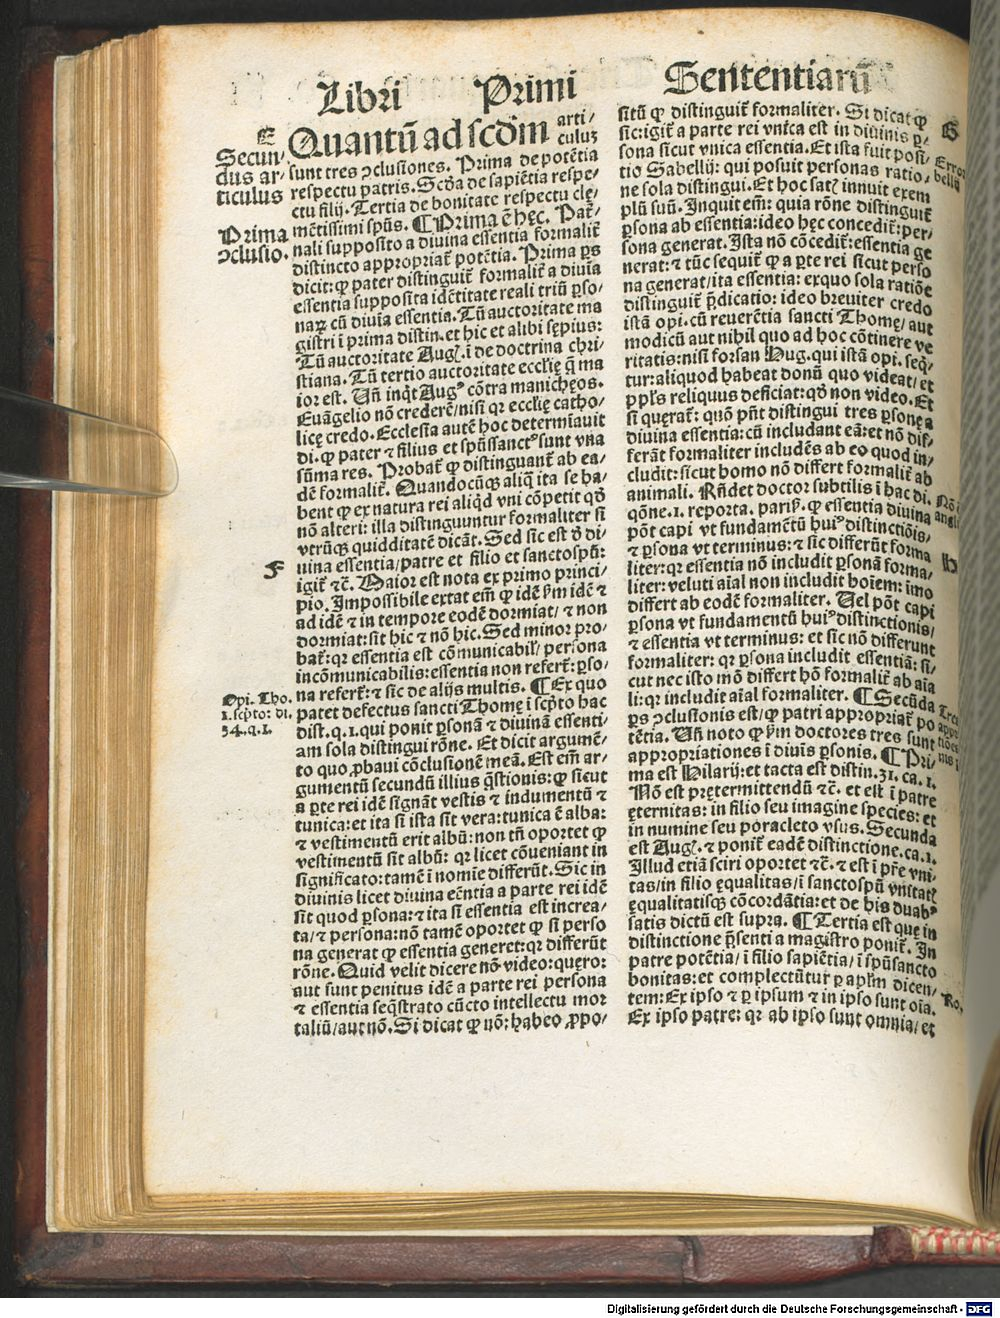 Libri Primi Sententiarū
E
Secun/
dus ar/
ticulus
Prima
ↄclusio.
F
Opi. Tho.
1. scpto: di.
34. q. 1.
Quantū ad scd̄m arti/
culuꝫ
sunt tres ↄclusiones. Prima de potētia
respectu patris. Scd̄a de sapiētia respe/
ctu filij. Tertia de bonitate respectu cle/
mētissimi spūs. ¶ Prima ē hęc. Pat̄/
nali supposito a diuina essentia formalit̄
distincto appropriat̄ potētia. Prima ꝑs
dicit: ꝙ pater distinguit̄ formalit̄ a diuīa
essentia supposita idētitate reali triū ꝑso/
naꝝ cū diuīa essentia. Tū auctoritate ma
gistri ī prima distin. et hic et alibi sępius:
Tū auctoritate Augꝭ. ī de doctrina chri/
stiana. Tū tertio auctoritate ecclīę q̄ ma
ior est. Uñ inqt Augꝰ cōtra manichęos.
Euāgelio nō crederē/nisi qꝛ ecclię catho/
licę credo. Ecclesia autē hoc determīauit
di. ꝙ pater ⁊ filius et spūssanctꝰ sunt vna
sūma res. Probat̄ ꝙ distinguant̄ ab ea/
dē formalit̄. Quandocūqꝫ aliq̄ ita se ha/
bent ꝙ ex natura rei aliqd̄ vni cōpetit qd̄
nō alteri: illa distinguuntur formaliter si
vtrūqꝫ quidditatē dicāt. Sed sic est d̄ di/
uina essentia/patre et filio et sanctospū:
igit̄ ⁊c̄. Maior est nota ex primo princi/
pio. Impossibile extat em̄ ꝙ idē ꝑm idē ⁊
ad idē ⁊ in tempore eodē dormiat/ ⁊ non
dormiat: sit hic ⁊ nō hic. Sed minor pro/
bat̄: qꝛ essentia est cōmunicabil̄/ persona
incōmunicabilis: essentia non refert̄: ꝑso/
na refert̄: ⁊ sic de alijs multis. ¶ Ex quo
patet defectus sancti Thomę ī scpto hac
dist. q. 1. qui ponit ꝑsonā ⁊ diuinā essenti/
am sola distingui rōne. Et dicit argumē/
to quo ꝓbaui cōclusionē meā. Est em̄ ar/
gumentū secundū illius q̄stionis: ꝙ sicut
a ꝑte rei idē signāt vestis ⁊ indumentū ⁊
tunica: et ita si ista sit vera: tunica ē alba:
⁊ vestimentū erit albū: non tñ oportet ꝙ
vestimentū sit albū: qꝛ licet cōueniant in
significato: tamē ī nomie differūt. Sic in
diuinis licet diuina eēntia a parte rei idē
sit quod ꝑsona: ⁊ ita si essentia est increa/
ta/ ⁊ persona: nō tamē oportet ꝙ si perso
na generat ꝙ essentia generet: qꝛ differūt
rōne. Quid velit dicere nō video: quęro:
aut sunt penitus idē a parte rei persona
⁊ essentia seq̄strato cūcto intellectu mor
taliū/ aut nō. Si dicat ꝙ nō: habeo ꝓpo/
sitū ꝙ distinguit̄ formaliter. Si dicat ꝙ
sic: igit̄ a parte rei vnica est in diuinis ꝑ/
sona sicut vnica essentia. Et ista fuit posi/
tio Sabellij: qui posuit personas ratio/
ne sola distingui. Et hoc satꝭ innuit exem
plū suū. Inquit em̄: quia rōne distinguit̄
ꝑsona ab essentia: ideo hęc concedit̄: per/
sona generat. Ista nō cōcedit̄: essentia ge
nerat: ⁊ tūc sequit̄ ꝙ a ꝑte rei sicut perso
na generat/ita essentia: exquo sola ratiōe
distinguit̄ p̄dicatio: ideo breuiter credo
istā opi. cū reuerētia sancti Thomę/ aut
modicū aut nihil quo ad hoc cōtinere ve
ritatis: nisi forsan Hug. qui istā opi. seq̄/
tur: aliquod habeat donū quo videat/ et
ꝓpꝉs reliquus deficiat: qd̄ non video. Et
si quęrat̄: quō pñt distingui tres ꝑsonę a
diuina essentia: cū includant eā: et nō dif/
ferāt formaliter includēs ab eo quod in/
cludit: sicut homo nō differt formalit̄ ab
animali. Rñdet doctor subtilis ī hac di.
qōne. 1. reporta. parisꝭ. ꝙ essentia diuina
pōt capi vt fundamētū huiꝰ distinctiōis/
⁊ ꝑsona vt terminus: ⁊ sic differūt forma
liter: qꝛ essentia nō includit ꝑsonā forma/
liter: veluti aīal non includit hoīem: īmo
differt ab eodē formaliter. Uel pōt capi
ꝑsona vt fundamentū huiꝰ distinctionis/
⁊ essentia vt terminus: et sic nō differunt
formaliter: qꝛ ꝑsona includit essentiā: si/
cut nec isto mō differt hō formalit̄ ab aīa
li: qꝛ includit aīal formaliter. ¶ Secūda
ꝑs ↄclusionis est/ ꝙ patri appropriat̄ po
tētia. Uñ noto ꝙ ꝑm doctores tres sunt
appropriationes ī diuīs ꝑsonis. ¶ Pri/
ma est Hilarij: et tacta est distin. 31. ca. 1.
Nō est prętermittendū ⁊c̄. et est ī patre
ęternitas: in filio seu imagine species: et
in numine seu poracleto vsus. Secunda
est Augꝭ. ⁊ ponit̄ eadē distinctione. ca. 1.
Illud etiā sciri oportet ⁊c̄. ⁊ est ī pr̄e vni/
tas/ in filio ęqualitas/ ī sanctospū vnitatꝭ
ęqualitatisqꝫ cōcordātia: et de his duabꝰ
satis dictū est supra. ¶ Tertia est quę in
distinctione p̄senti a magistro ponit̄. In
patre potētia/ ī filio sapiētia/ ī spūsancto
bonitas: et complectūtur ꝑ apꝉm dicen/
tem: Ex ipso ⁊ ꝑ ipsum ⁊ in ipso sunt oīa.
Ex ipso patre: qꝛ ab ipso sunt omnia/ et
G
Error
bellij
H
Ro.
Digitalisierung gefördert durch die Deutsche Forschungsgemeinschaft - DFG